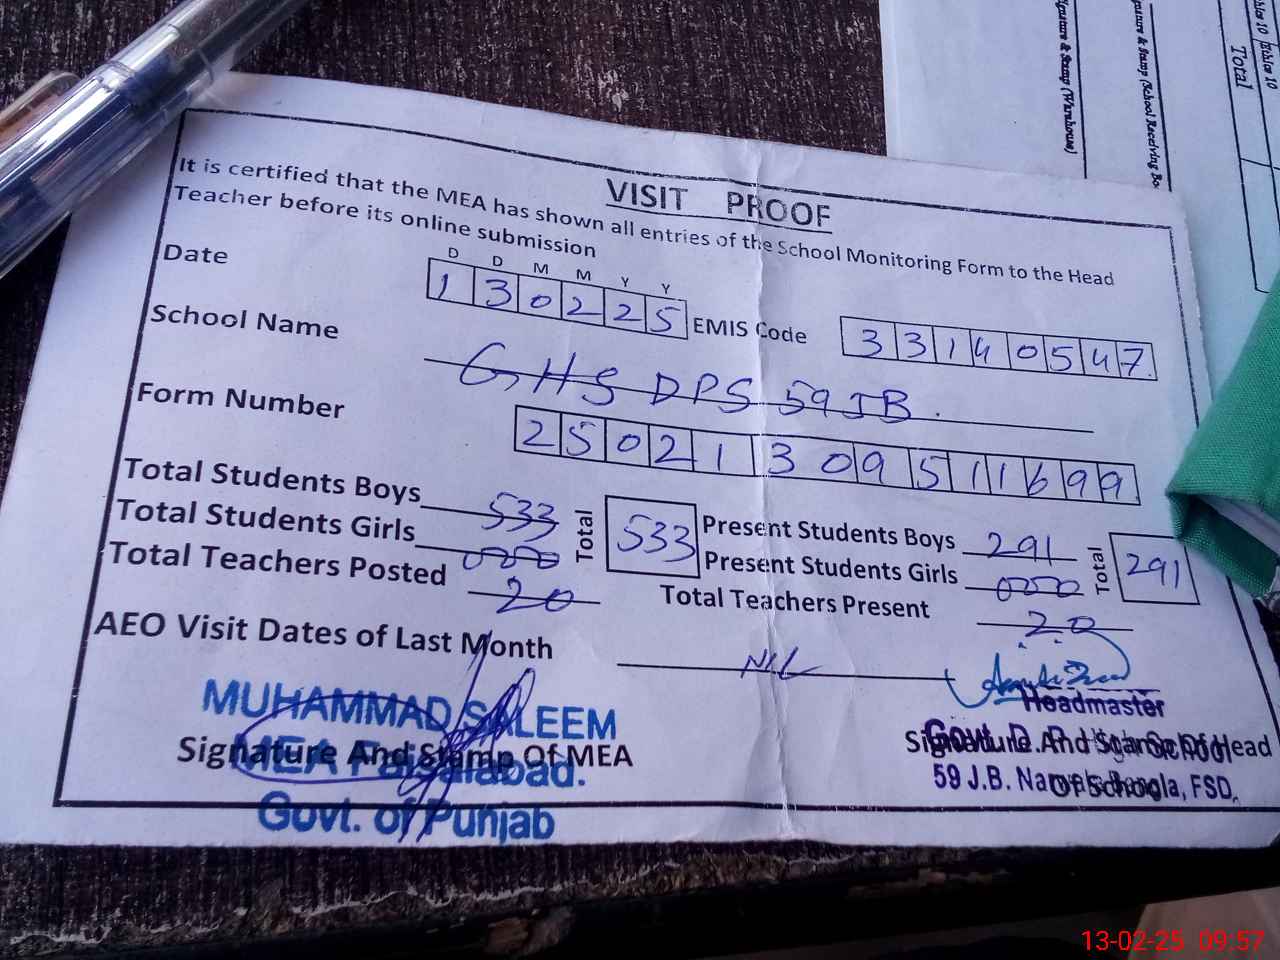 VISIT PROOF
It is certified that the MEA has shown all entries of the School Monitoring Form to the Head
Teacher before its online submission
D D M M Y Y
Date 1 3 0 2 2 5 EMIS Code 3 3 1 4 0 5 4 7
School Name GHS DPS 59 JB.
Form Number 2 5 0 2 1 3 0 9 5 1 1 6 9 9
Total Students Boys 533 Total 533 Present Students Boys 291 Total 291
Total Students Girls 000 Present Students Girls 000
Total Teachers Posted 20 Total Teachers Present 20
AEO Visit Dates of Last Month NIL
MUHAMMAD SALEEM
Signature And Stamp Of MEA
MEA Faisalabad.
Govt. of Punjab
Headmaster
Signature And Stamp Of Head
Of School
Govt. D. P. High School
59 J.B. Bangla, FSD.
Signature & Stamp (Warehouse)
Signature & Stamp (School Receiving
Total
13-02-25 09:57